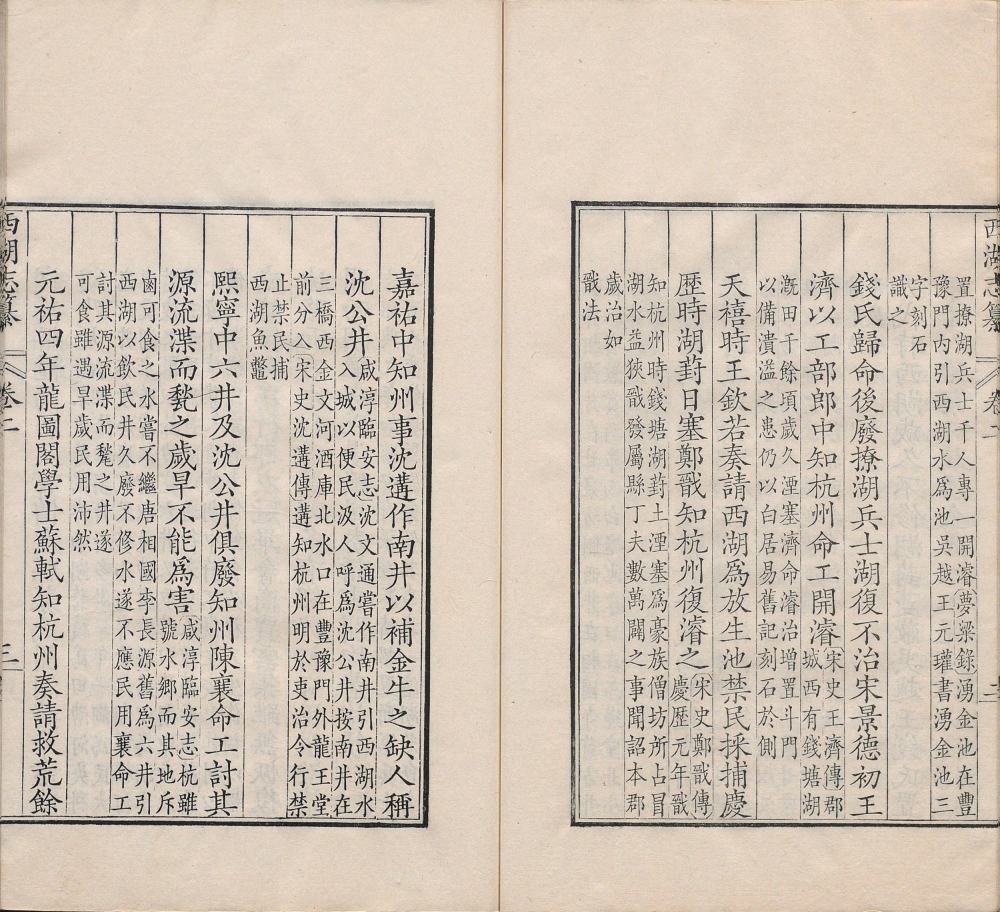 西湖志纂
置撩湖兵士千人專一開濬夢粱錄湧金池在豐
豫門內引西湖水爲池吳越王元瓘書湧金池三
字刻石
識之
錢氏歸命後廢撩湖兵士湖復不治宋景德初王
濟以工部郎中知杭州命工開濬宋史王濟傳郡
城西有錢塘湖
漑田千餘頃歲久湮塞濟命濬治增置斗門
以備潰溢之患仍以白居易舊記刻石於側
天禧時王欽若奏請西湖爲放生池禁民採捕慶
歷時湖葑日塞鄭戩知杭州復濬之宋史鄭戩傳
慶歷元年戩
知杭州時錢塘湖葑土湮塞爲豪族僧坊所占冒
湖水益狹戩發屬縣丁夫數萬闢之事聞詔本郡
歲治如
戩法
嘉祐中知州事沈遘作南井以補金牛之缺人稱
沈公井咸淳臨安志沈文通嘗作南井引西湖水
入城以便民汲人呼爲沈公井按南井在
三橋西金文河酒庫北水口在豐豫門外龍王堂
前分入宋史沈遘傳遘知杭州明於吏治令行禁
止禁民捕
西湖魚鼈
熙寧中六井及沈公井俱廢知州陳襄命工討其
源流渫而甃之歲旱不能爲害咸淳臨安志杭雖
號水鄉而其地斥
鹵可食之水嘗不繼唐相國李長源舊爲六井引
西湖以飲民井久廢不修水遂不應民用襄命工
討其源流渫而甃之井遂
可食雖遇旱歲民用沛然
元祐四年龍圖閣學士蘇軾知杭州奏請救荒餘
西湖志纂 卷二 三